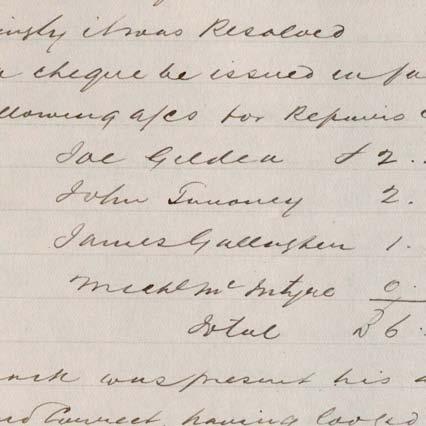 ingly it was Resolved
a cheque be issued in fa
llowing a/cs for Repairs
Joe Gildea £ 2.
John Timoney 2.
James Gallagher 1.
Michl Mc Intyre 0.
Total £ 6.
was present his a
and Correct, having looked